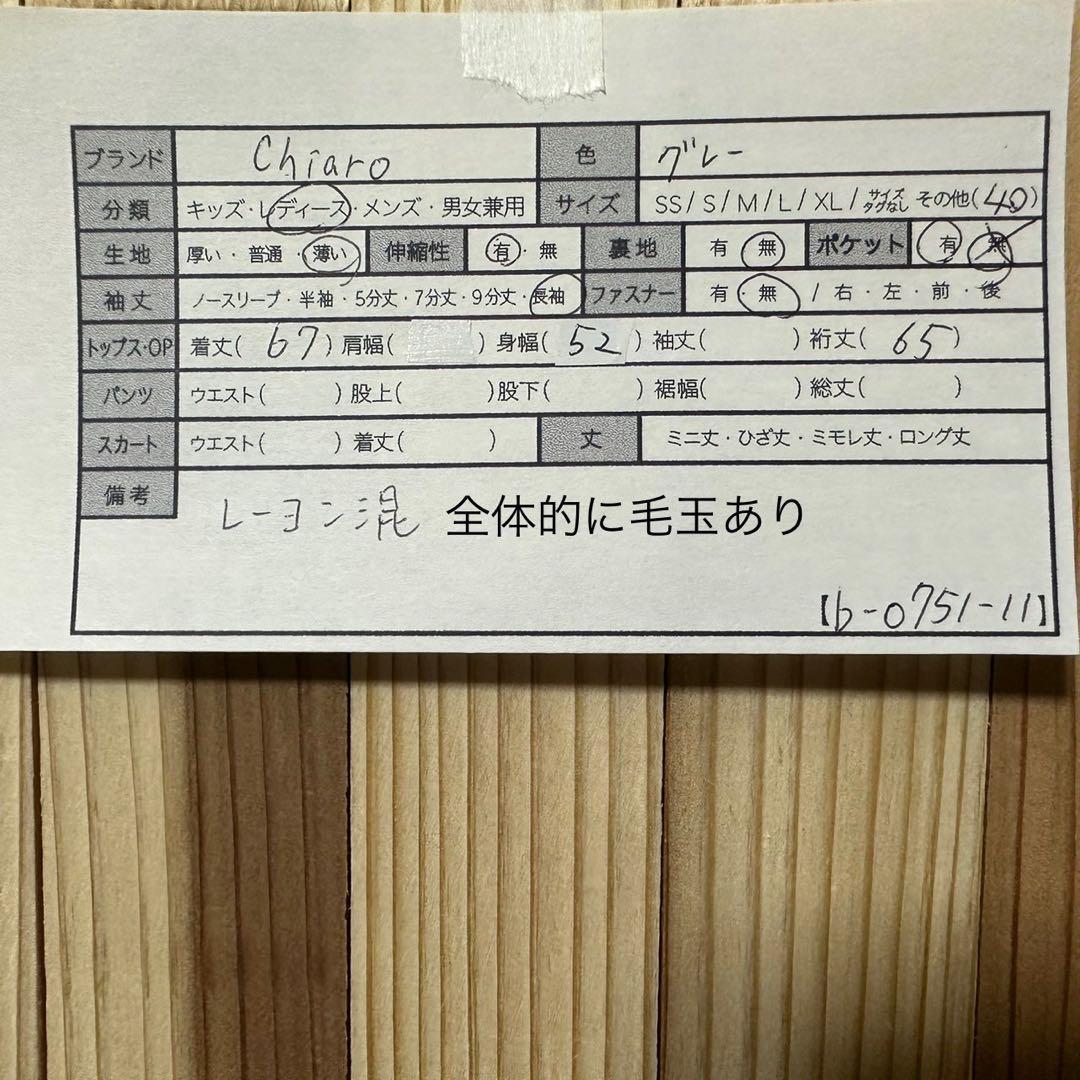 ブランド Chiaro 色 グレー
分類 キッズ・レディース・メンズ・男女兼用 サイズ SS/S/M/L/XL/サイズタグなし その他(40)
生地 厚い・普通・薄い 伸縮性 有・無 裏地 有 無 ポケット 有 無
袖丈 ノースリーブ・半袖・5分丈・7分丈・9分丈・長袖 ファスナー 有・無 / 右・左・前・後
トップス・OP 着丈(67)肩幅( )身幅(52)袖丈( )裄丈(65)
パンツ ウエスト( )股上( )股下( )裾幅( )総丈( )
スカート ウエスト( )着丈( ) 丈 ミニ丈・ひざ丈・ミモレ丈・ロング丈
備考 レーヨン混 全体的に毛玉あり
【b-0751-11】